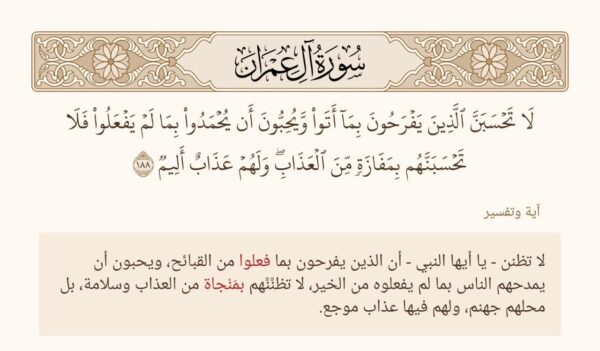 سُورَةُ آلِ عِمْرَان
لَا تَحْسَبَنَّ ٱلَّذِينَ يَفْرَحُونَ بِمَآ أَتَوا۟ وَّيُحِبُّونَ أَن يُحْمَدُوا۟ بِمَا لَمْ يَفْعَلُوا۟ فَلَا
تَحْسَبَنَّهُم بِمَفَازَةٍ مِّنَ ٱلْعَذَابِۖ وَلَهُمْ عَذَابٌ أَلِيمٌ ١٨٨
آية وتفسير
لا تظنن - يا أيها النبي - أن الذين يفرحون بما فعلوا من القبائح، ويحبون أن
يمدحهم الناس بما لم يفعلوه من الخير، لا تظنَّنَّهم بمَنْجاة من العذاب وسلامة، بل
محلهم جهنم، ولهم فيها عذاب موجع.